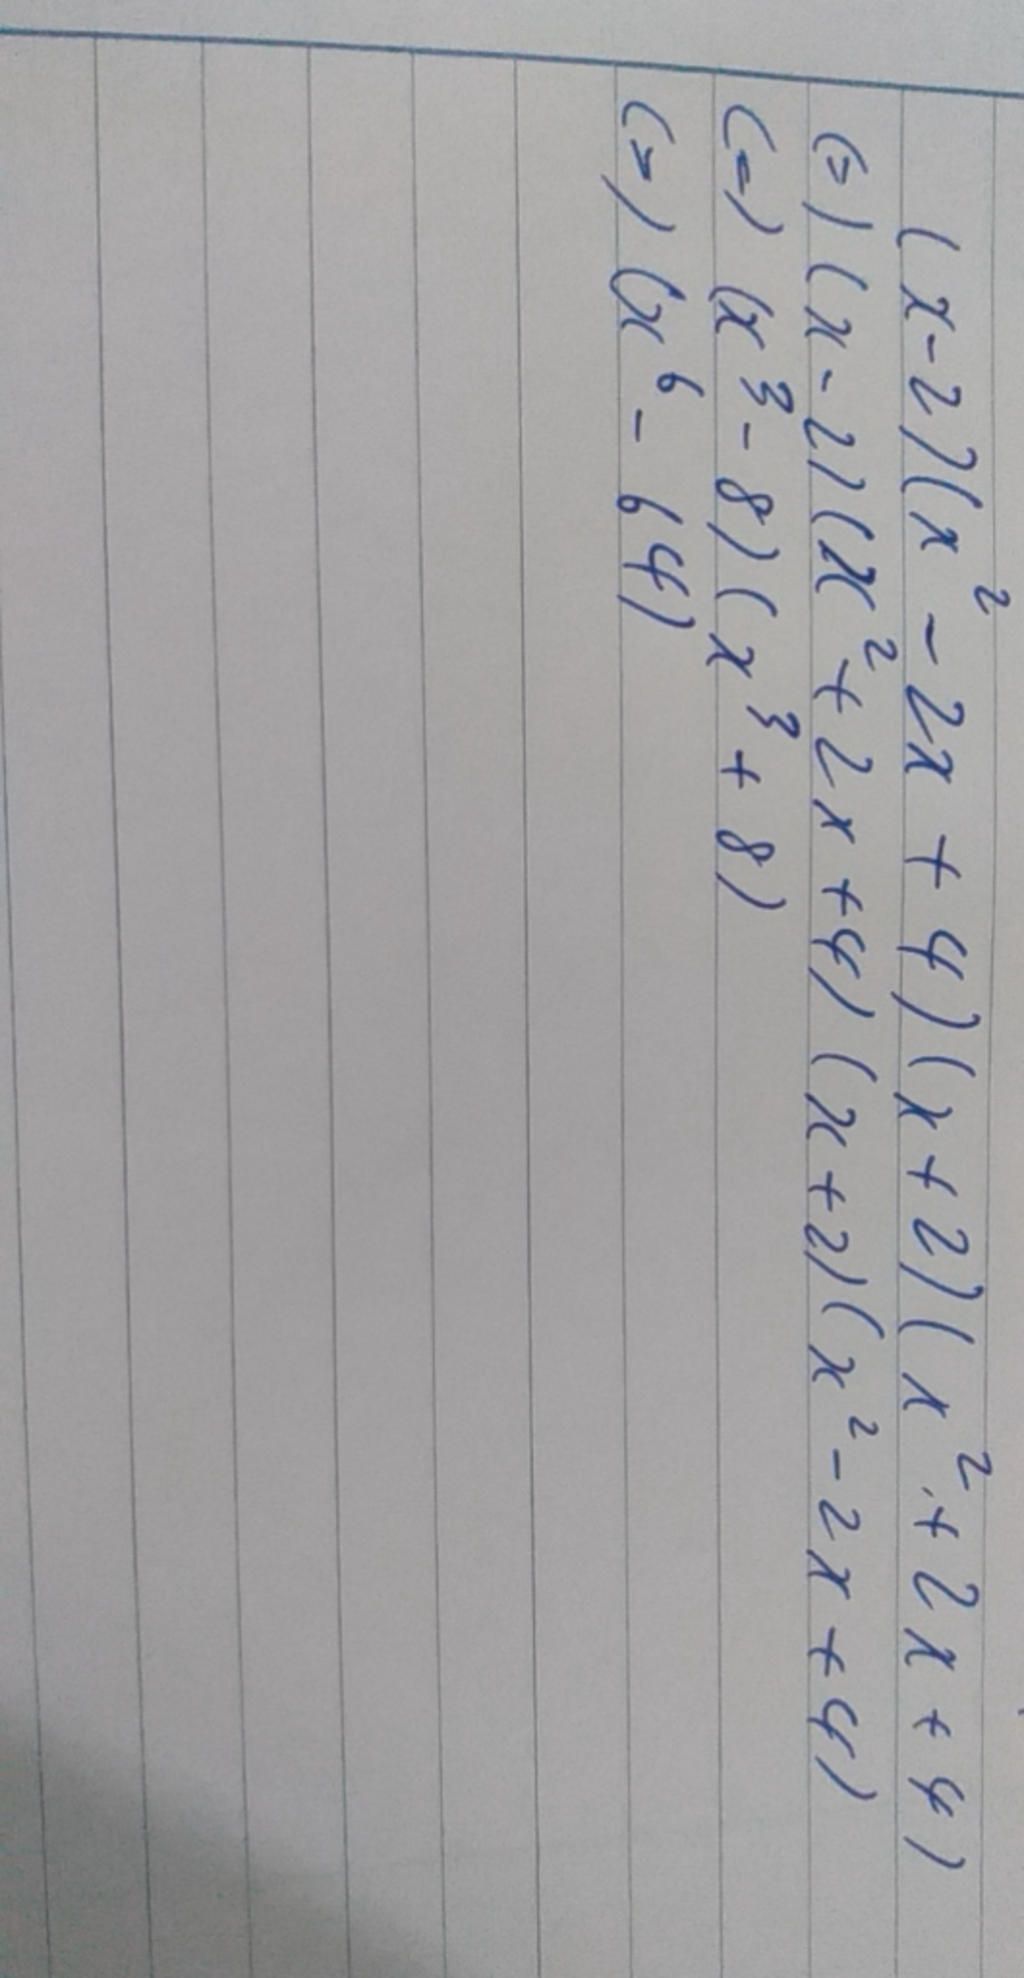 (x-2)(x²-2x+4)(x+2)(x²+2x+4)
(=)(x-2)(x²+2x+4)(x+2)(x²-2x+4)
(=)(x³-8)(x³+8)
(=)(x⁶-64)